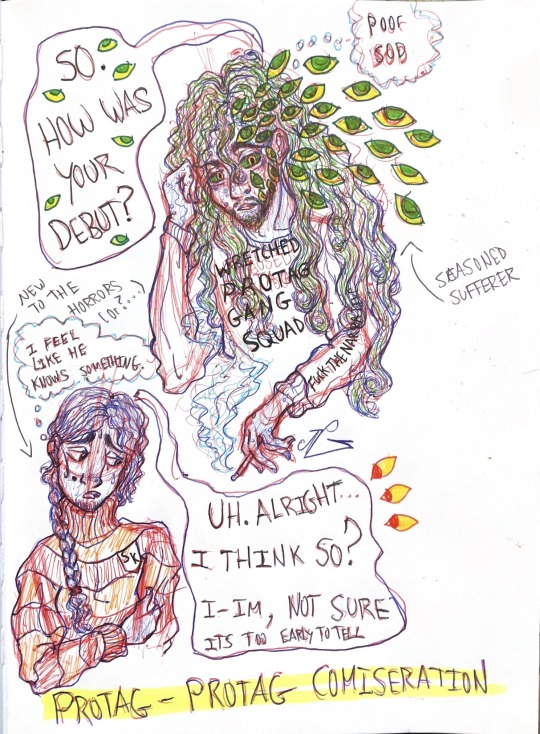 SO.
HOW WAS
YOUR
DEBUT?
POOR
SOD
WRETCHED
PROTAG
GANG
SQUAD
FUCK THE
SEASONED
SUFFERER
NEW
TO THE
HORRORS
(or...?...)
I FEEL
LIKE HE
KNOWS SOMETHING.
SK
UH. ALRIGHT...
I THINK SO?
I-IM, NOT SURE
ITS TOO EARLY TO TELL
PROTAG - PROTAG COMISERATION